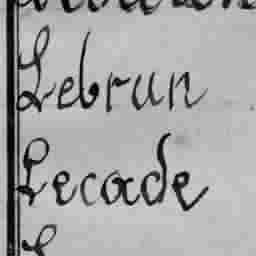 Lebrun
Lecade